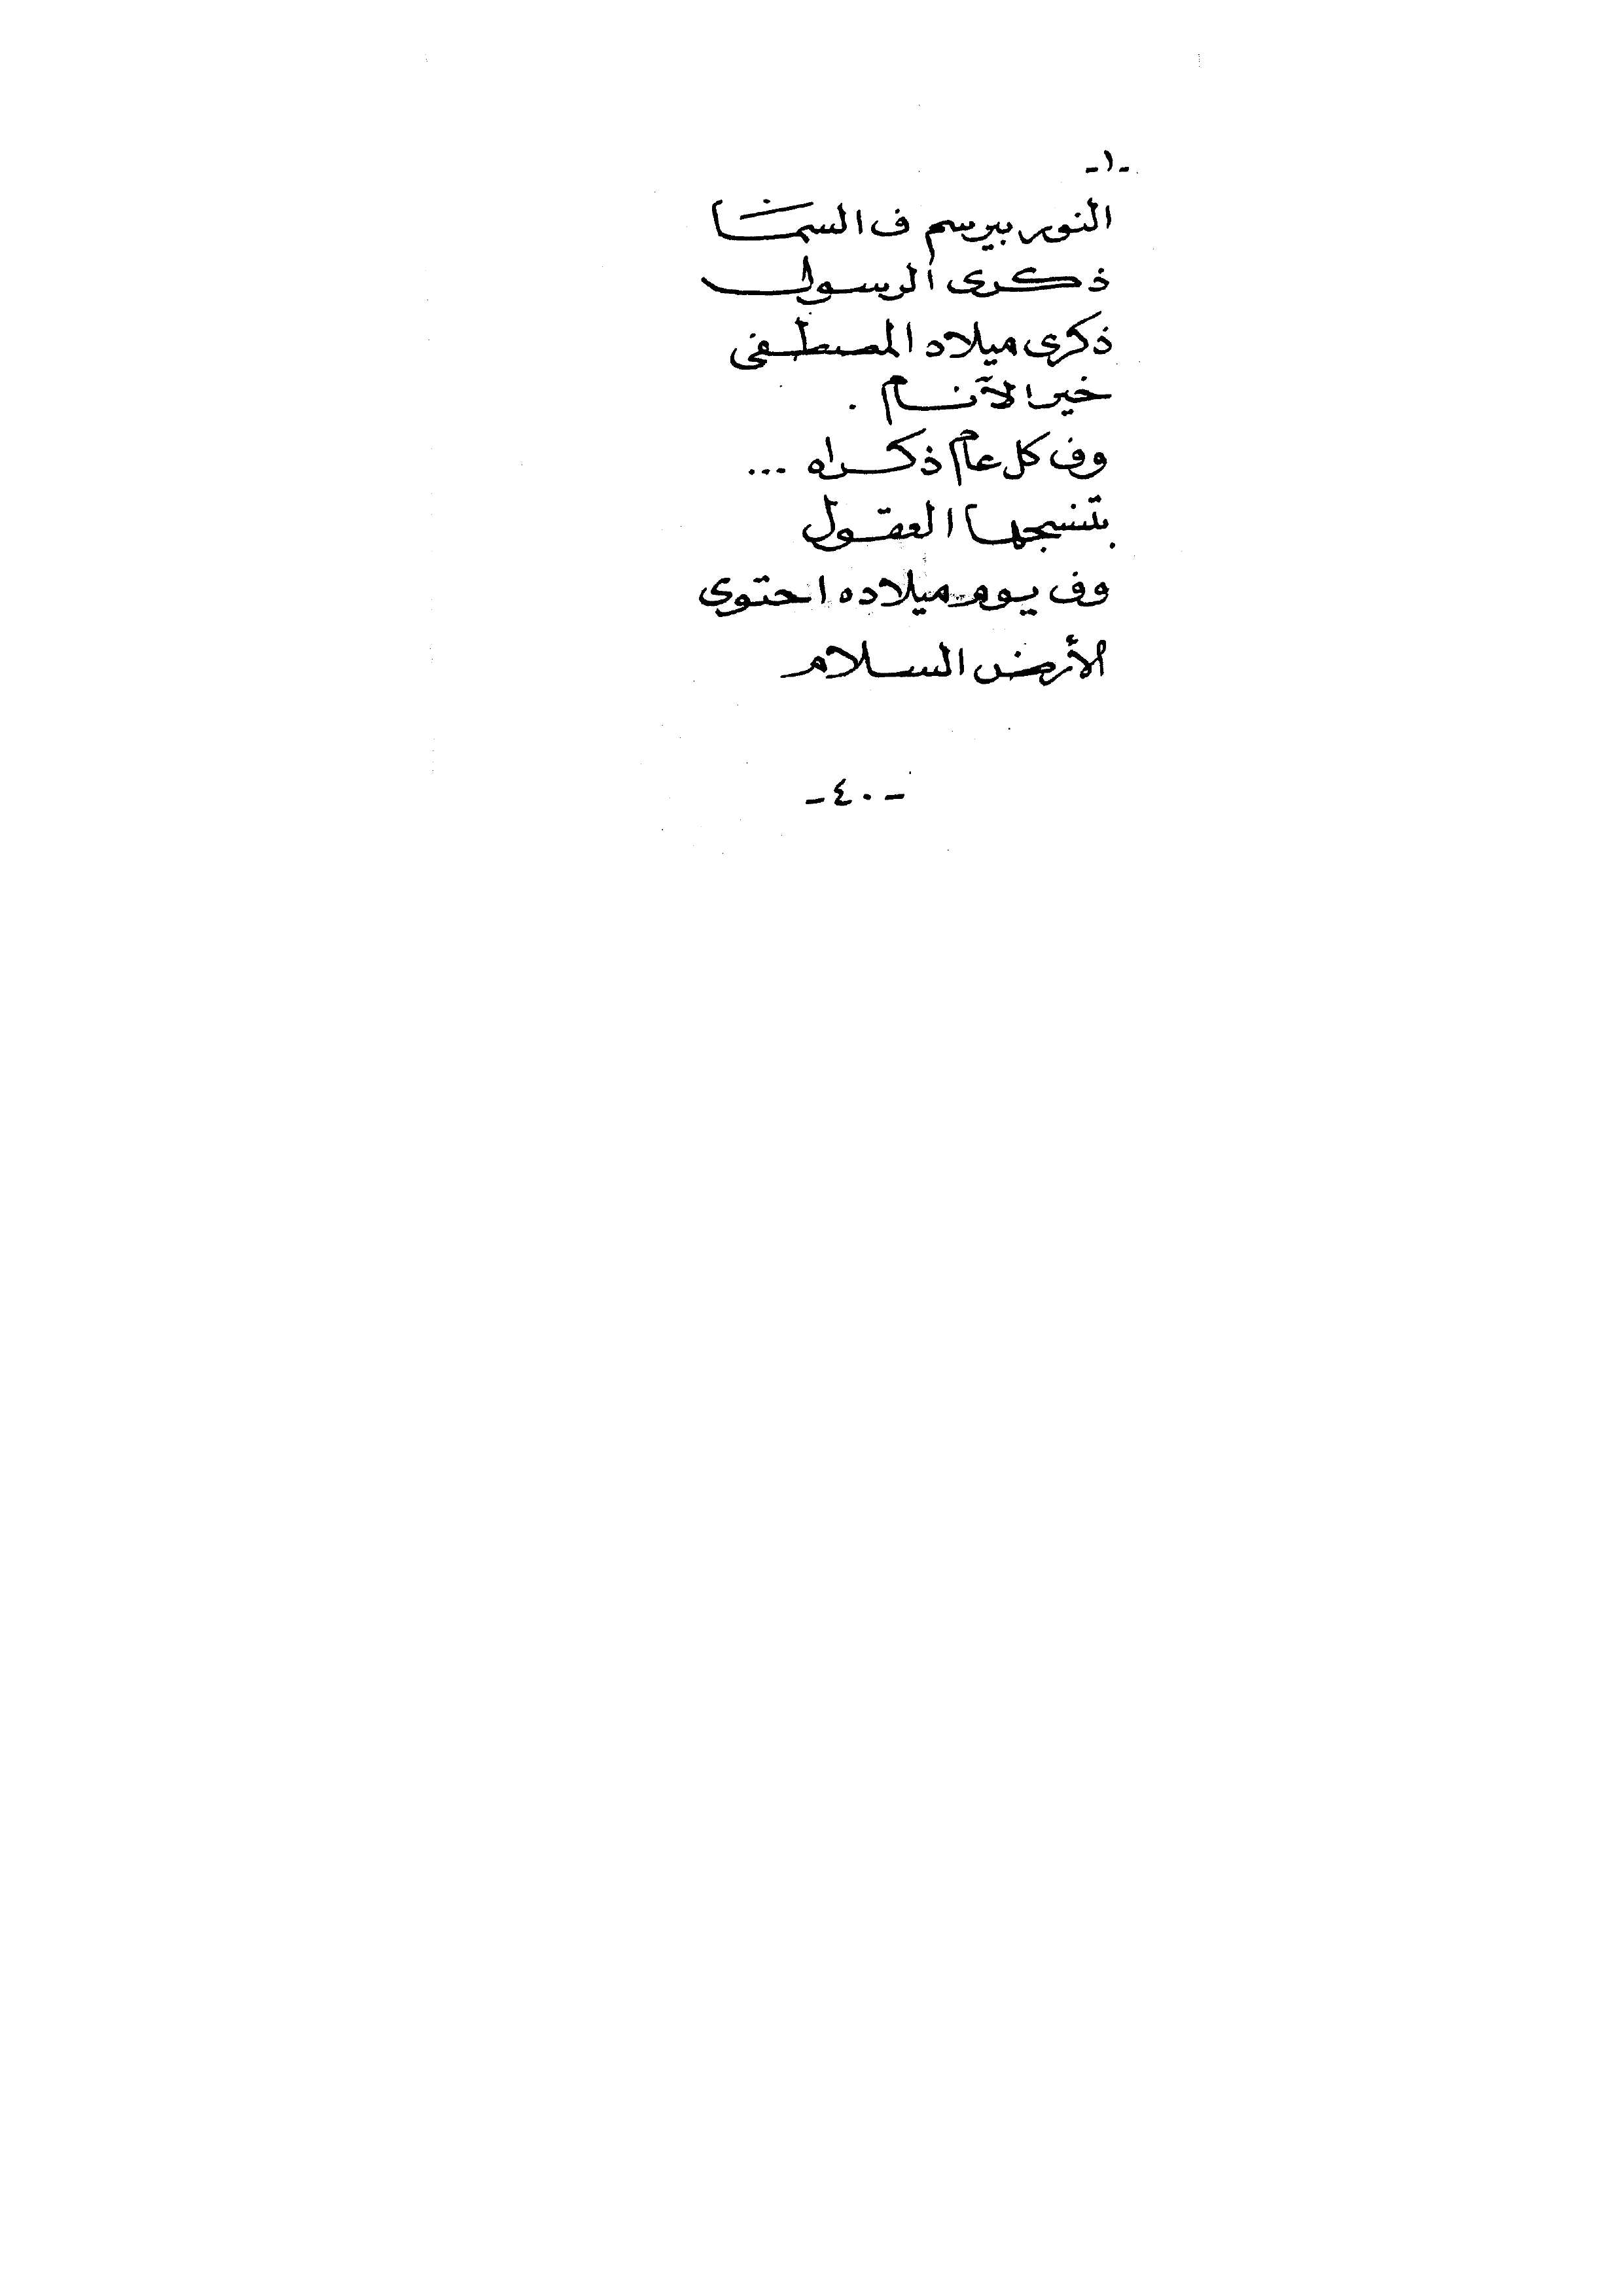 -١-
النور بيرسم ف السما
ذكرى الرسول
ذكرى ميلاد المصطفى
خير الآنام .
وف كل عام ذكراه ...
بتنسجها العقول
وف يوم ميلاده احتوى
الأرض السلام
-٤٠-